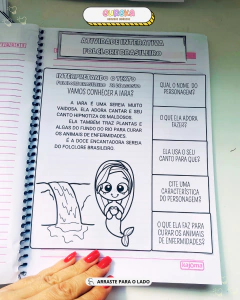 ATIVIDADE INTERATIVA
FOLCLORE BRASILEIRO
INTERPRETANDO O TEXTO
FOLCLORE BRASILEIRO
VAMOS CONHECER A IARA?
A IARA É UMA SEREIA MUITO
VAIDOSA. ELA ADORA CANTAR E SEU
CANTO HIPNOTIZA OS MALDOSOS.
ELA TAMBÉM TRAZ PLANTAS E
ALGAS DO FUNDO DO RIO PARA CURAR
OS ANIMAIS DE ENFERMIDADES.
E A DOCE ENCANTADORA SEREIA
DO FOLCLORE BRASILEIRO.
QUAL O NOME DO
PERSONAGEM?
O QUE ELA ADORA
FAZER?
ELA USA O SEU
CANTO PARA QUE?
CITE UMA
CARACTERÍSTICA
DO PERSONAGEM?
O QUE ELA FAZ PARA
CURAR OS ANIMAIS
DE ENFERMIDADES?
ARRASTE PARA O LADO